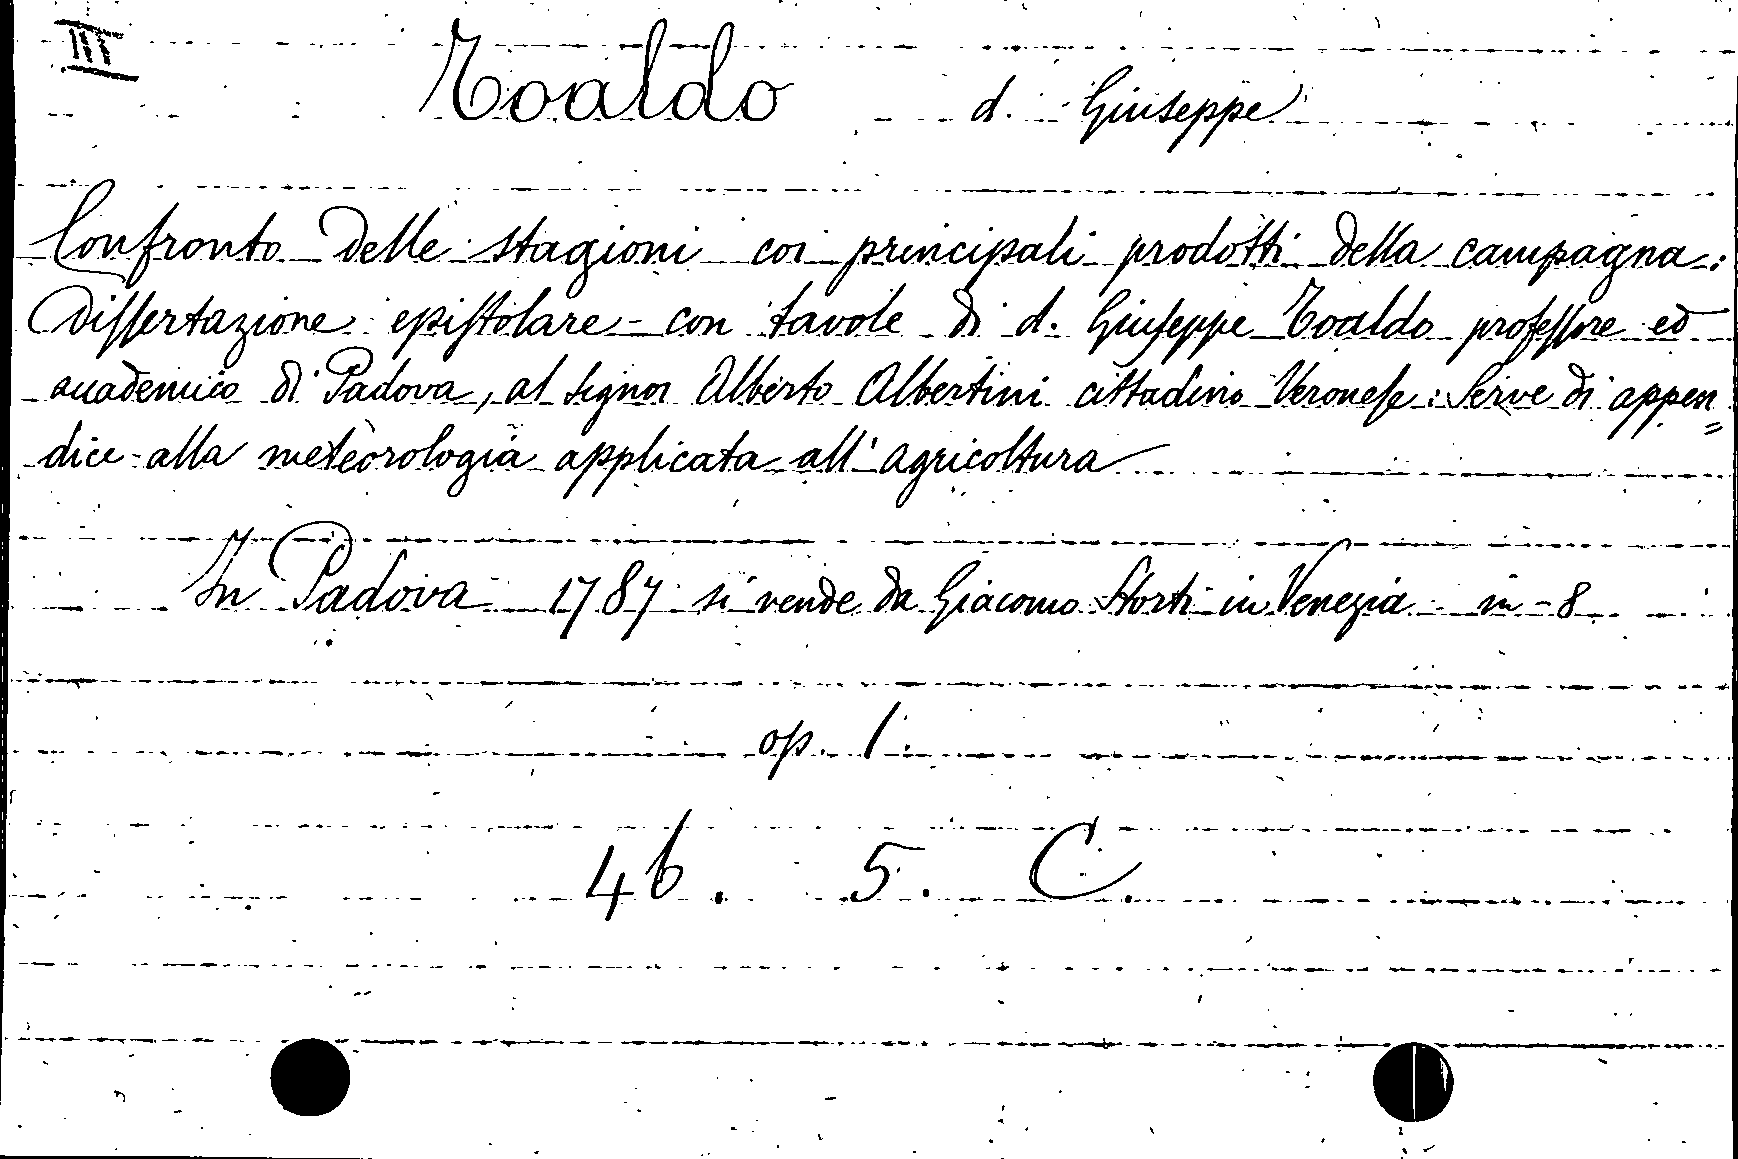 III
Toaldo d. Giuseppe
Confronto delle stagioni coi principali prodotti della campagna:
Dissertazione epistolare - con tavole di d. Giuseppe Toaldo professore ed
accademico di Padova, al signor Alberto Albertini cittadino Veronese: Serve di appen=
dice alla meteorologia applicata all'agricoltura
In Padova 1787 si vende da Giacomo Storti in Venezia in-8
op. 1.
46. 5. C.